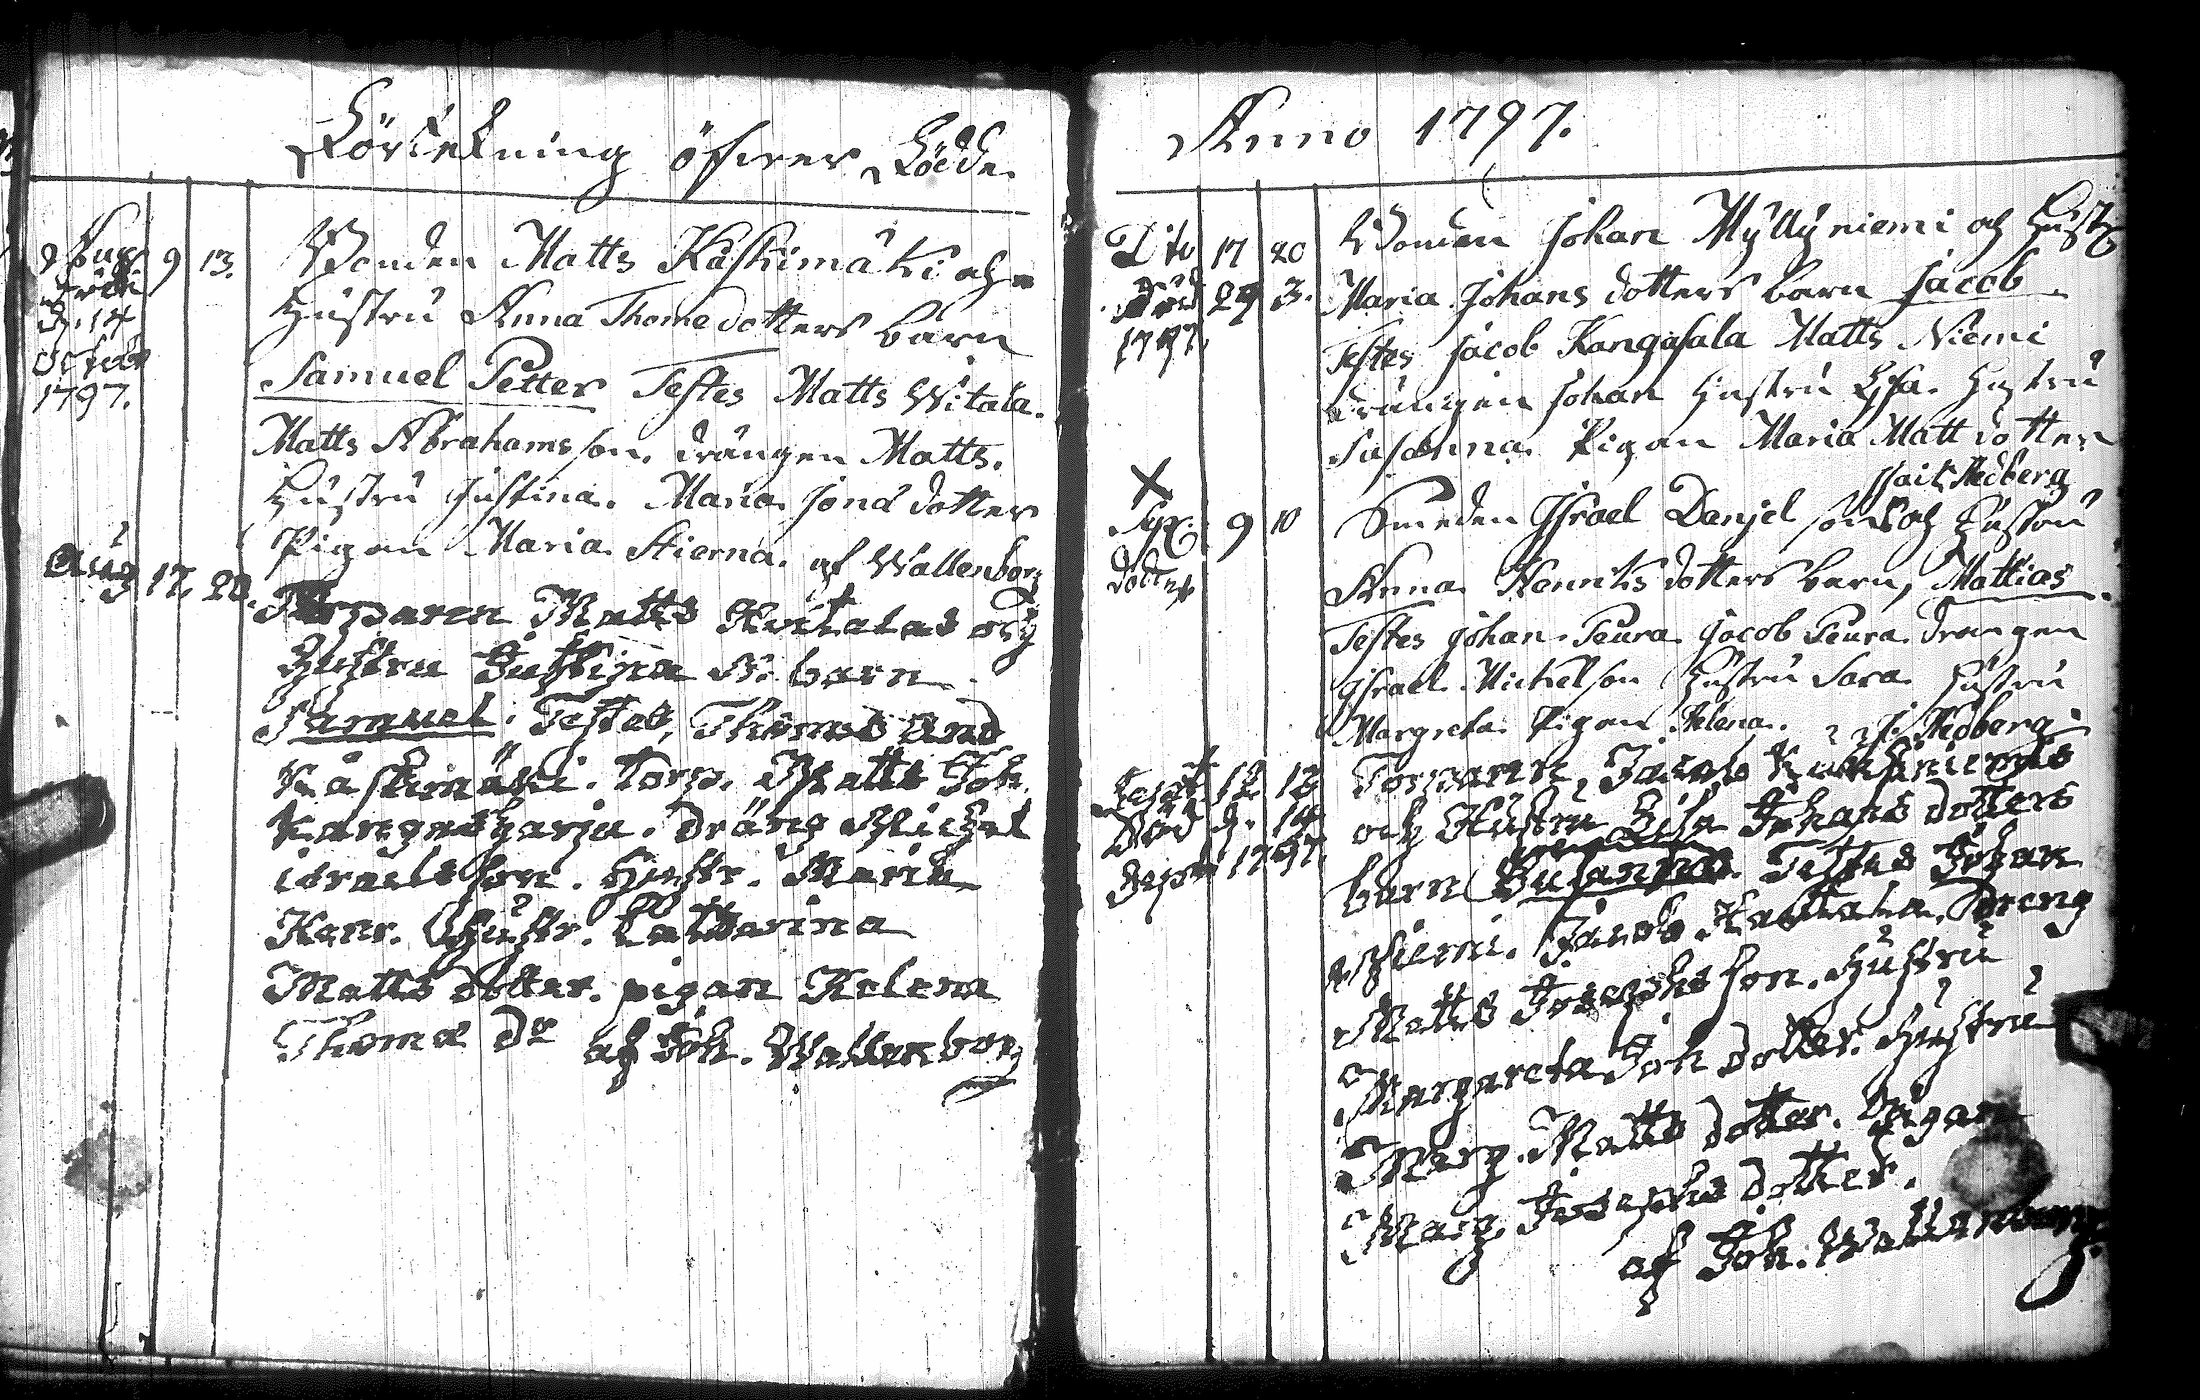 Förtekning öfwer Födde
Aug 9 13. Bonden Matts Kåskimäki och
död d. 14 October 1797.
Hustru Anna Thomedotters barn
Samuel Petter Testes Matts Witala.
Matts Abrahamsson. drängen Matts.
Hustru Justina. Maria Jonæ dotter
Pigan Maria Stierna. af Wallenborg
Aug 17. 20. Torparen Matts Hvitalas och
Hustru Justina N. barn
Samuel. Testes, Thomas And
Kåskimäki. Torp. Matts Joh.
Kangasharju. dräng Michel
israels son. Hustr. Maria
Henr. Hustr. Cattarina
Matts dotter. pigan Helena
Thomæ dr af Joh. Wallenborg
Anno 1797.
Dito 17 20 Bonden Johan Myllyniemi och Hustr
död 29 3. Maria Johans dotters barn Jacob
1797. Testes Jacob Kangasala Matts Niemi
drängen Johan Hustru Lisa. Hustru
Susanna. Pigan Maria Matt dotter
Hedberg
X
9 10 Smeden Israel Danjel son och Hustru
Anna Henriks dotters barn, Mattias
Testes Johan Peura Jacob Peura drängen
Israel Michelson Hustru Sara Hustru
Margreta Pigan Helena. Hedberg
Sept 12 13 Torparen, Jacob
död d. 14 och Hustru Lisa Johans dotters
1797. barn Susanna. Testes Johan
Niemi. Jacob dreng
Matts Josephs son. Hustru
Margareta Joh dotter. Hustru
Marg. Matts dotter. Pigan
Marg. Josephs dotter.
af Joh. Wallenborg